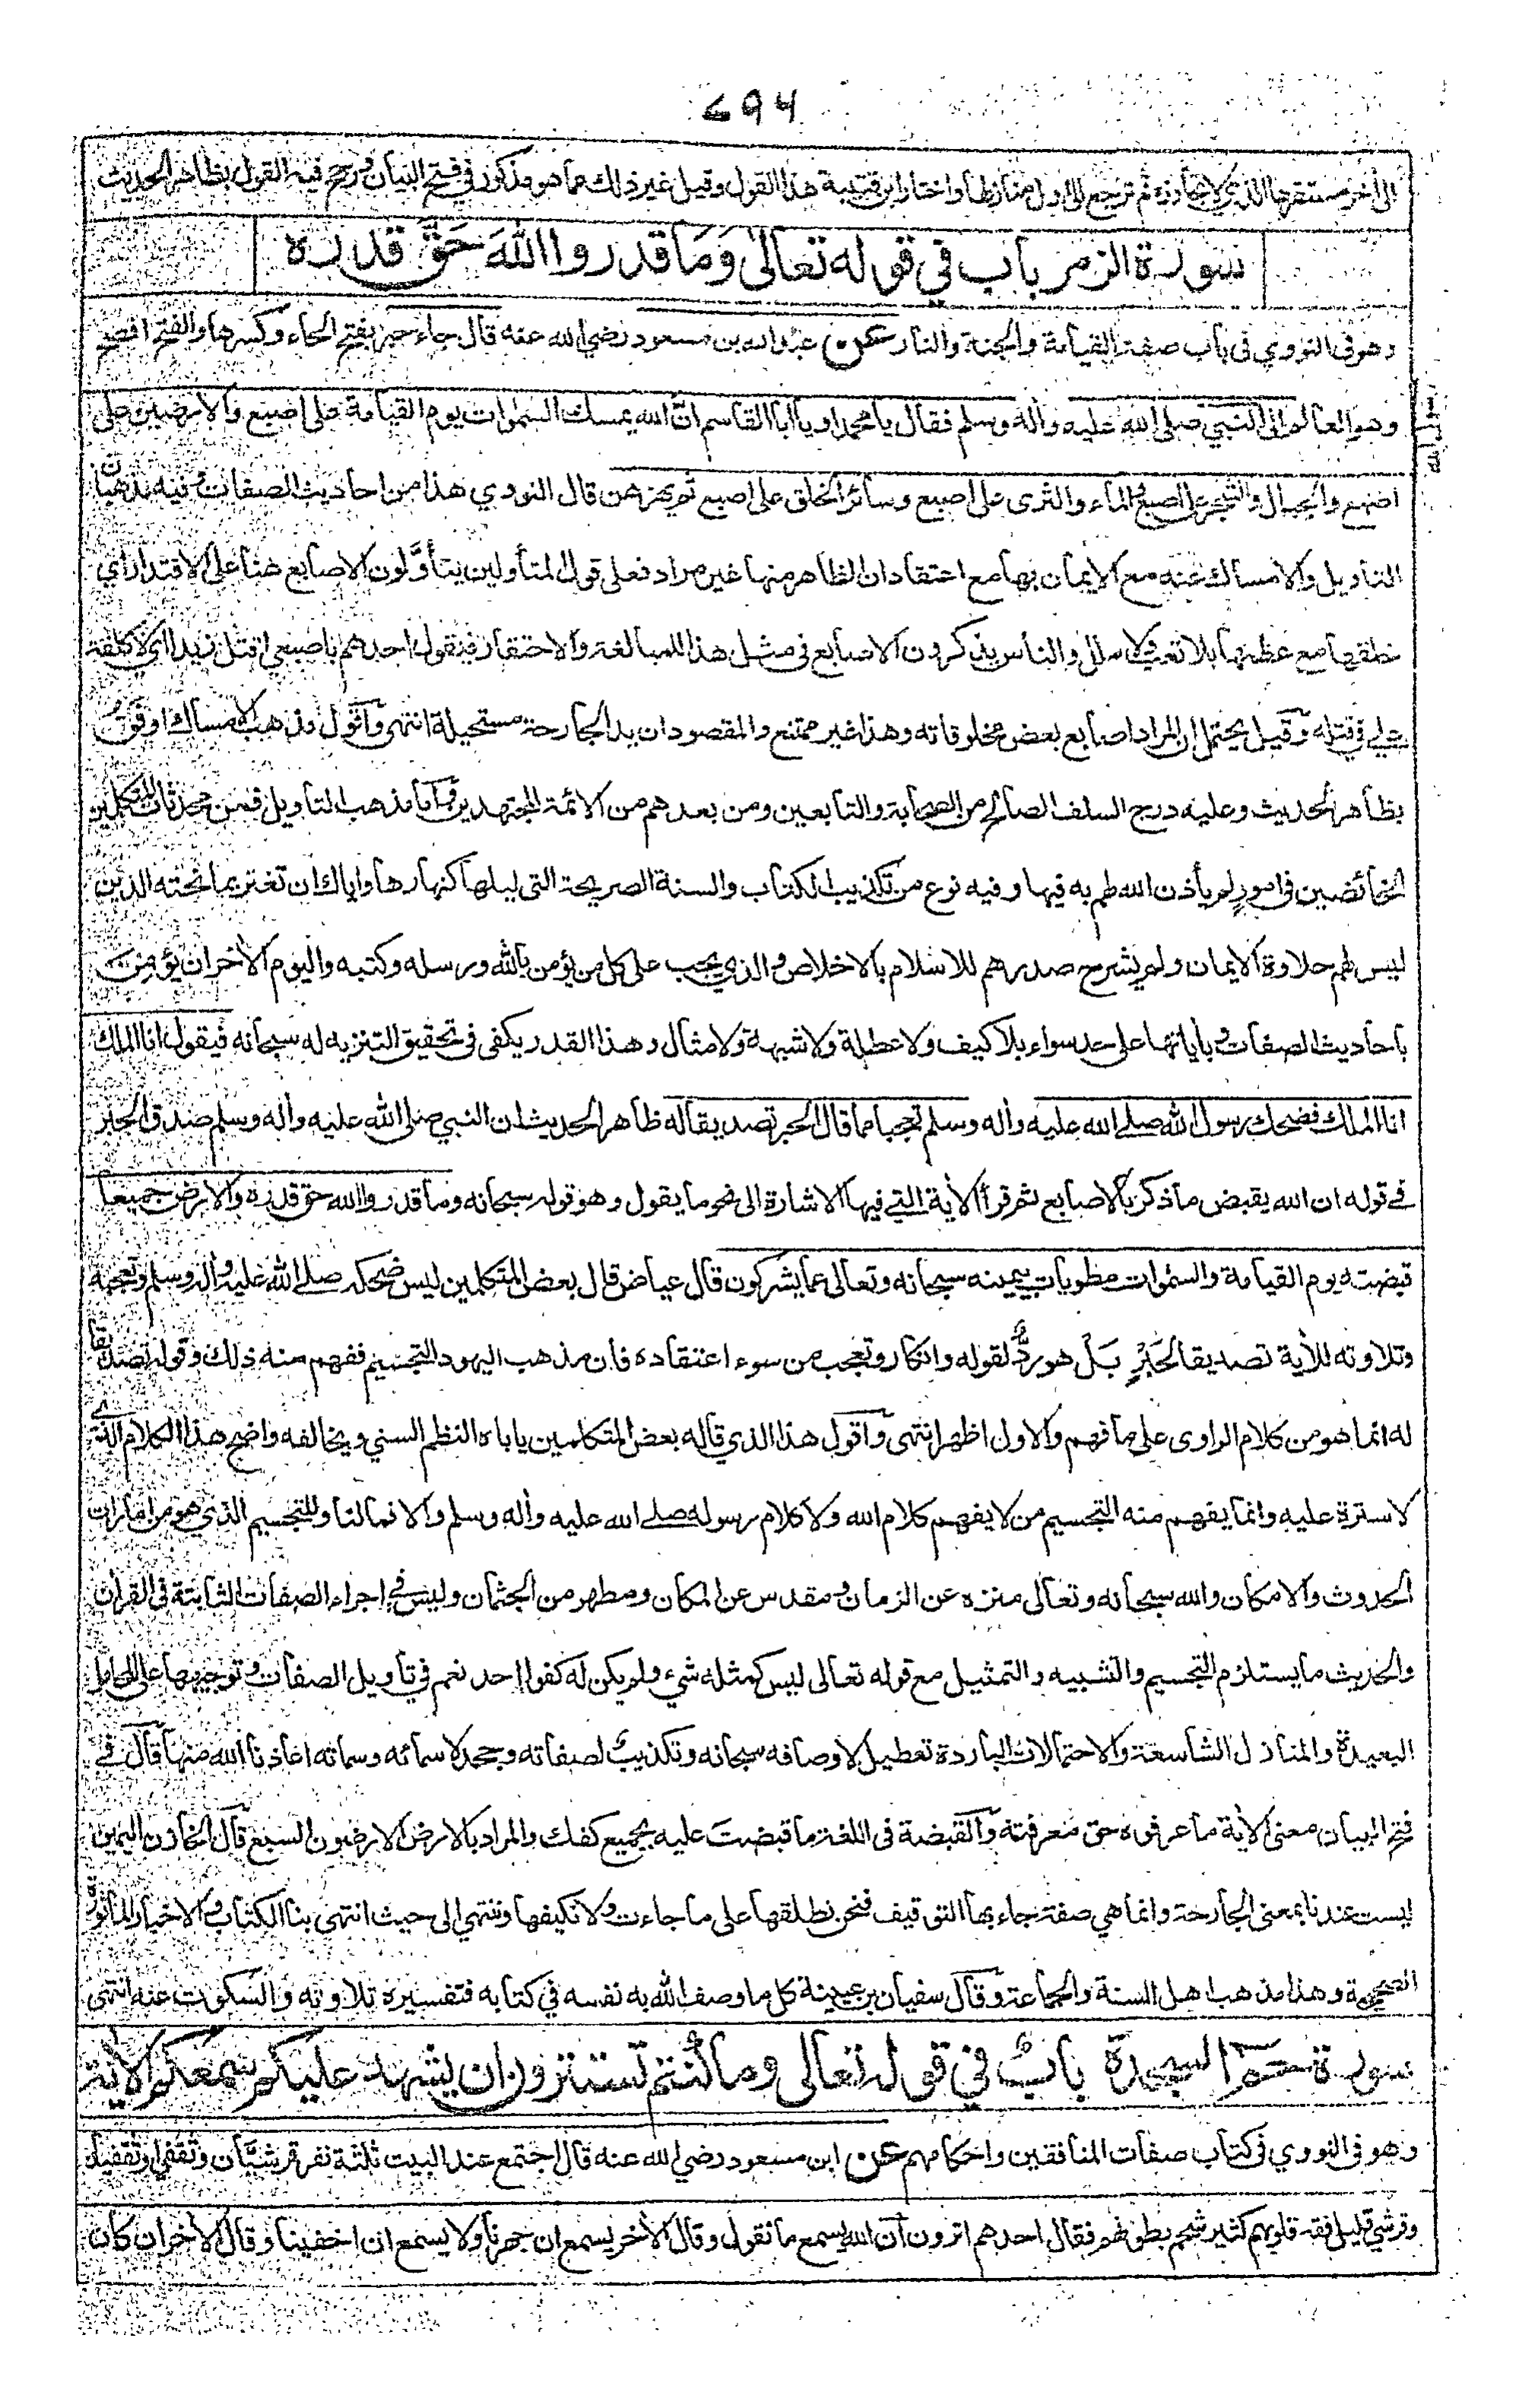 ٦٩٤
الى أخر مستقرها الذي لا تجاوزه ثم ترجع الى اول منازلها واختار ابن قتيبة هذا القول وقيل غير ذلك مما هو مذكور في فتح البيان ورجح فيه القول بظاهر الحديث
سورة الزمر باب في قوله تعالى وَمَا قدروا اللهَ حَقَّ قدره
وهو في النووي في باب صفة القيامة والجنة والنار عن عبد الله بن مسعود رضي الله عنه قال جاء حبر بفتح الحاء وكسرها والفتح افصح
وهو العالم الى النبي صلى الله عليه وأله وسلم فقال يا محمد او يا أبا القاسم انّ الله يمسك السموات يوم القيامة على اصبع والارضين على
اصبع والجبال والشجر على اصبع والماء والثرى على اصبع وسائر الخلق على اصبع ثم يهزهن قال النووي هذا من احاديث الصفات وفيه مذهبان
التاويل والامساك عنه مع الايمان بها مع اعتقاد ان الظاهر منها غير مراد فعلى قول المتأولين يتأوَّلون الاصابع هنا على الاقتدار اي
خلقها مع عظمها بلا تعب ولا ملل والناس يذكرون الاصابع في مثل هذا للمبالغة والاحتقار فيقول احدهم باصبعي اقتل زيدا اي لا كلفة
علي في قتله وقيل يحتمل ان المراد اصابع بعض مخلوقاته وهذا غير ممتنع والمقصود ان يد الجارحة مستحيلة انتهى واقول مذهب الامساك اوفق
بظاهر الحديث وعليه درج السلف الصالح من الصحابة والتابعين ومن بعدهم من الائمة المجتهدين واما مذهب التاويل فمن محدثات المتكلمين
الخائضين في امورٍ لم يأذن الله لهم به فيها وفيه نوع من تكذيب الكتاب والسنة الصريحة التي ليلها كنهارها واياك ان تغتر بما نحته الذين
ليس لهم حلاوة الايمان ولم يشرح صدرهم للاسلام بالاخلاص والذي يجب على كل من يؤمن بالله ورسله وكتبه واليوم الأخر ان يؤمن
بأحاديث الصفات وبأياتها على حد سواء بلا كيف ولا عطلة ولا شبهة ولا مثال وهذا القدر يكفي في تحقيق التنزيه له سبحانه فيقول انا الملك
انا الملك فضحك رسول الله صلے الله عليه وأله وسلم تعجبا مما قال الحبر تصديقا له ظاهر الحديث ان النبي صلى الله عليه وأله وسلم صدق الحبر
في قوله ان الله يقبض ما ذكر بالاصابع ثم قرأ الأية التي فيها الاشارة الى نحو ما يقول وهو قوله سبحانه وما قدروا الله حق قدره والارض جميعا
قبضته يوم القيامة والسموات مطويات بيمينه سبحانه وتعالى عما يشركون قال عياض قال بعض المتكلمين ليس ضحكه صلے الله عليه وأله وسلم وتعجبه
وتلاوته للأية تصديقا للحَبْرِ بَلْ هو ردٌّ لقوله وانكار وتعجب من سوء اعتقاده فان مذهب اليهود التجسيم ففهم منه ذلك وقوله تصديقا
له انما هو من كلام الراوى على ما فهم والاول اظهر انتهى واقول هذا الذي قاله بعض المتكلمين ياباه النظم السني ويخالفه واضح هذا الكلام الذي
لا سترة عليه وانما يفهم منه التجسيم من لا يفهم كلام الله ولا كلام رسوله صلے الله عليه وأله وسلم والا فما لنا وللتجسيم الذي هو من امارات
الحدوث والامكان والله سبحانه وتعالى منزه عن الزمان ومقدس عن المكان ومطهر من الجثمان وليس في اجراء الصفات الثابتة في القرأن
والحديث ما يستلزم التجسيم والتشبيه والتمثيل مع قوله تعالى ليس كمثله شيء ولم يكن له كفوا احد نعم في تأويل الصفات وتوجيهها على المحامل
البعيدة والمنازل الشاسعة والاحتمالات الباردة تعطيل لاوصافه سبحانه وتكذيب لصفاته وجحد لاسمائه وسماته اعاذنا الله منها قال في
فتح البيان معنى الأية ما عرفوه حق معرفته والقبضة في اللغة ما قبضت عليه بجميع كفك والمراد بالارض الارضون السبع قال الخازن اليمين
ليست عندنا بمعنى الجارحة وانما هي صفة جاء بها التوقيف فنحن نطلقها على ما جاءت ولا نكيفها وننتهي الى حيث انتهى بنا الكتاب والاخبار المأثورة
الصحيحة وهذا مذهب اهل السنة والجماعة وقال سفيان بن عيينة كل ما وصف الله به نفسه في كتابه فتفسيره تلاوته والسكوت عنه انتهى
سورة حمٓ السجدة بابٌ في قوله تعالى وما كنتم تستترون ان يشهد عليكم سمعكم الأية
وهو في النووي في كتاب صفات المنافقين واحكامهم عن ابن مسعود رضي الله عنه قال اجتمع عند البيت ثلثة نفر قرشيَّان وثقفي او ثقفيان
وقرشي قليل فقه قلوبهم كثير شحم بطونهم فقال احدهم اترون أن الله يسمع ما نقول وقال الأخر يسمع ان جهرنا ولا يسمع ان اخفينا وقال الأخر ان كان